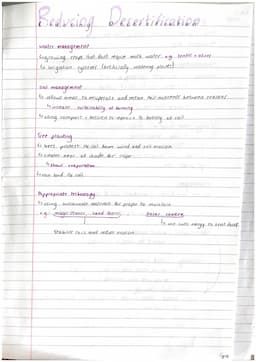 Reducing Desertification
water management
↳ growing crops that dont require much water e.g. lentils + olives
↳ irrigation systems (artificially watering plants)
soil management
↳ allows areas to recuperate and retain their nutrients between seasons
↳ increases sustainability of farming
↳ using compost + manure to improve the fertility of soil
Tree planting
↳ trees protect the soil from wind and soil erosion
↳ creates areas of shade for crops
↳ slows evaporation
↳ can bind the soil
Appropriate technology
↳ using sustainable materials for people to maintain
e.g. magic stones, sand dams, solar cookers
↳ use suns energy to cook food
stabilise soils and reduce erosion